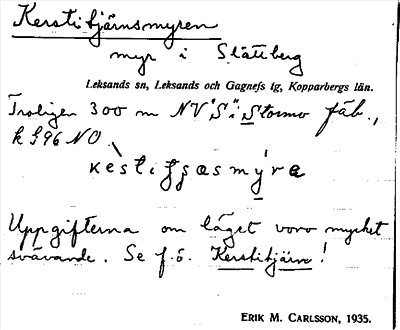 Kerstitjärnsmyren
myr i Slättberg
Leksands sn, Leksands och Gagnefs tg, Kopparbergs län.
Troligen 300 m NV "S" i Stormo fäb.,
k f 96 NO.
Uppgifterna om läget voro mycket
svävande. Se f.ö. Kerstitjärn!
ERIK M. CARLSSON, 1935.